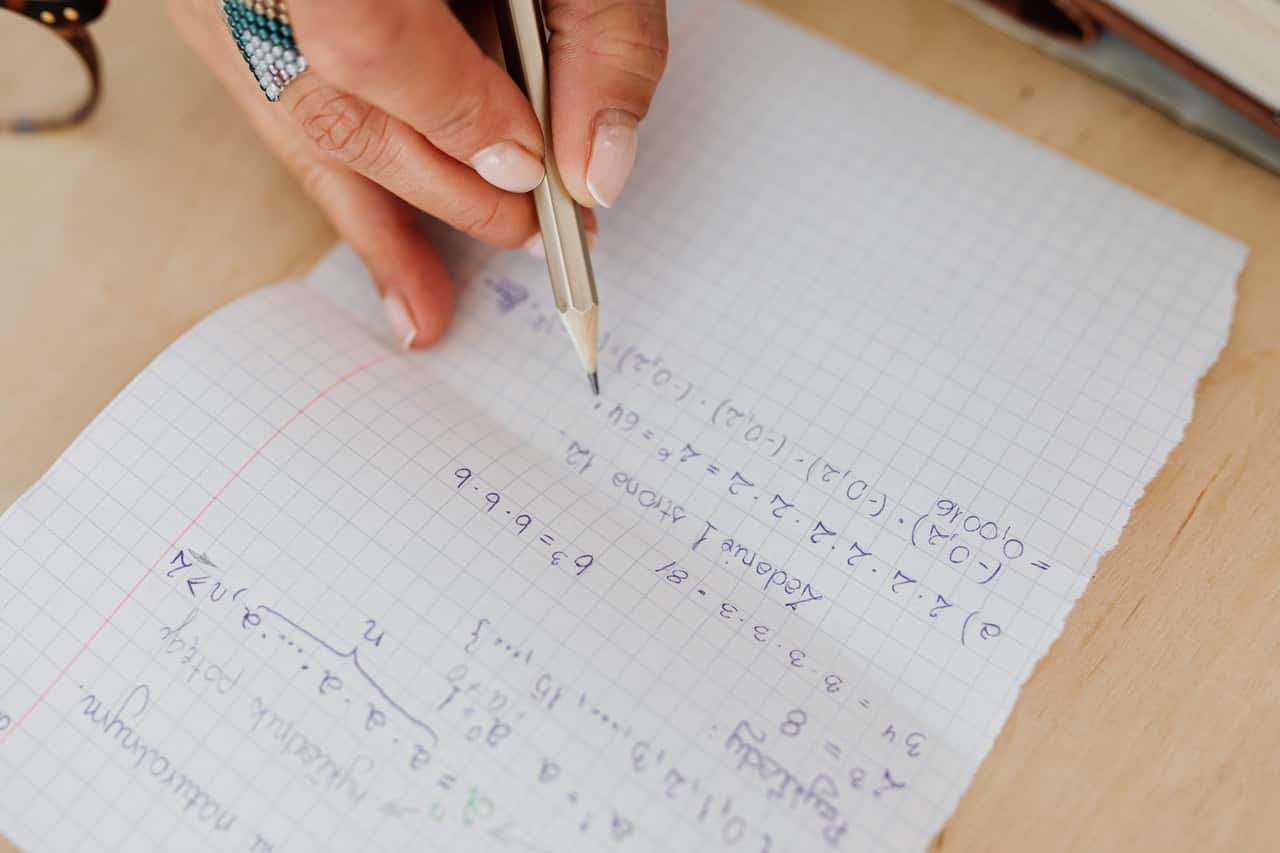 naturalnym.
→ wykładnik potęgi
aⁿ = a · a · a · ... · a, n > 2
n
a¹ = a a⁰ = 1
a ≠ 0
0, 1, 2, 3, ..., 15, ...}
Przykłady:
2³ = 8
3⁴ = 3 · 3 · 3 · 3 = 81
b³ = b · b · b
Zadanie 1 strona 12.
a) 2 · 2 · 2 · 2 · 2 · 2 = 2⁶ = 64.
(-0,2) · (-0,2) · (-0,2) · (-0,2) =
= 0,0016